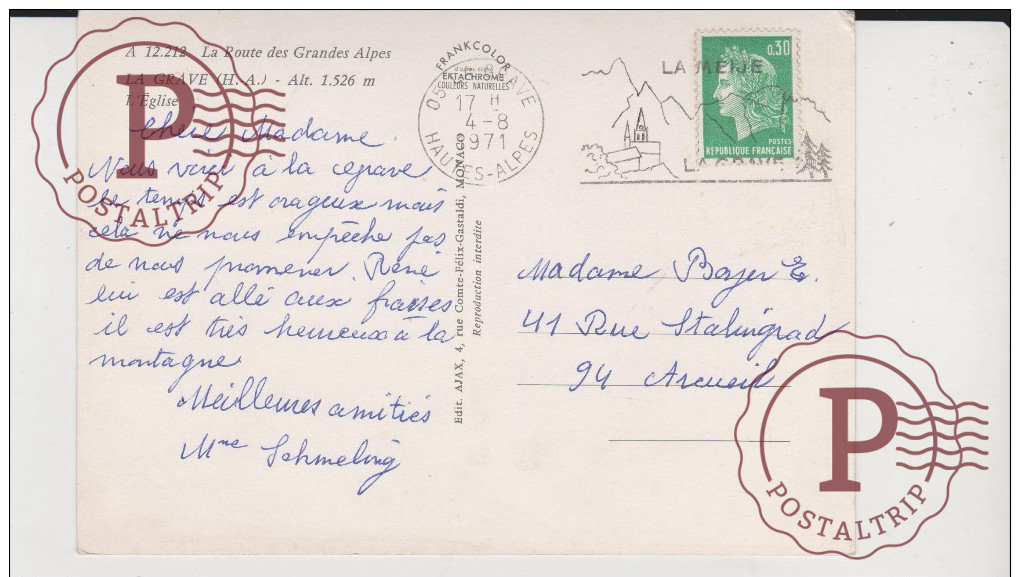 A 12.212 La Route des Grandes Alpes
LA GRAVE (H.-A.) - Alt. 1.526 m
L'Église
Chère Madame.
Nous voici à la cgrave
le temps est orageux mais
cela ne nous empêche pas
de nous promener. René
lui est allé aux fraises
il est très heureux à la
montagne
Meilleures amitiés
Mme Schmeling
FRANKCOLOR
EKTACHROME
COULEURS NATURELLES
05 GRAVE
17 H
4-8
1971
HAUTES-ALPES
Edit. AJAX, 4, rue Comte-Félix-Gastaldi, MONACO
Reproduction interdite
LA MEIJE
LA GRAVE
0,30
POSTES
RÉPUBLIQUE FRANÇAISE
Madame Boyer E.
41 Rue Stalingrad
94 Arcueil
P
POSTALTRIP
P
POSTALTRIP